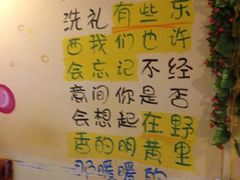 洗礼有些东
西我们也许
会忘记不经
意间你是否
会想起在野
香的明黄里
那暖暖的